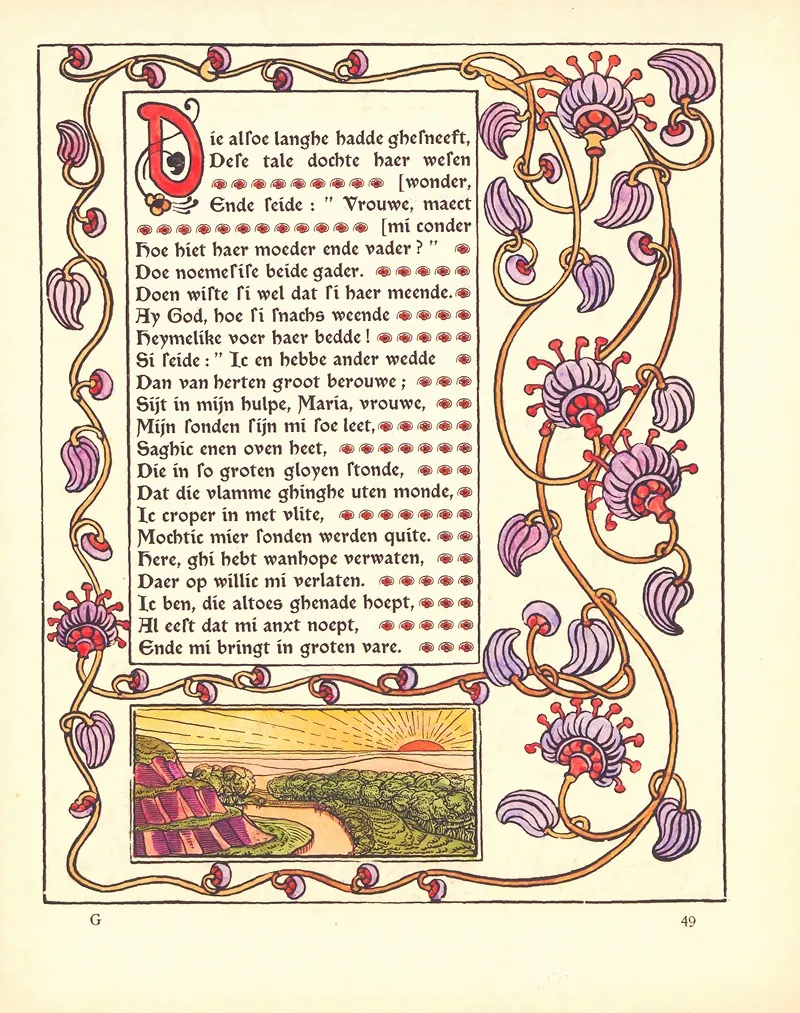 Die alſoe langhe hadde gheſneeft,
Deſe tale dochte haer weſen
[wonder,
Ende ſeide : " Vrouwe, maect
[mi conder
Hoe hiet haer moeder ende vader ? "
Doe noemeſiſe beide gader.
Doen wiſte ſi wel dat ſi haer meende.
Ay God, hoe ſi ſnachs weende
Heymelike voer haer bedde !
Si ſeide : " Ic en hebbe ander wedde
Dan van herten groot berouwe ;
Sijt in mijn hulpe, Maria, vrouwe,
Mijn ſonden ſijn mi ſoe leet,
Saghic enen oven heet,
Die in ſo groten gloyen ſtonde,
Dat die vlamme ghinghe uten monde,
Ic croper in met vlite,
Mochtic mier ſonden werden quite.
Here, ghi hebt wanhope verwaten,
Daer op willic mi verlaten.
Ic ben, die altoes ghenade hoept,
Al eeſt dat mi anxt noept,
Ende mi bringt in groten vare.
G
49